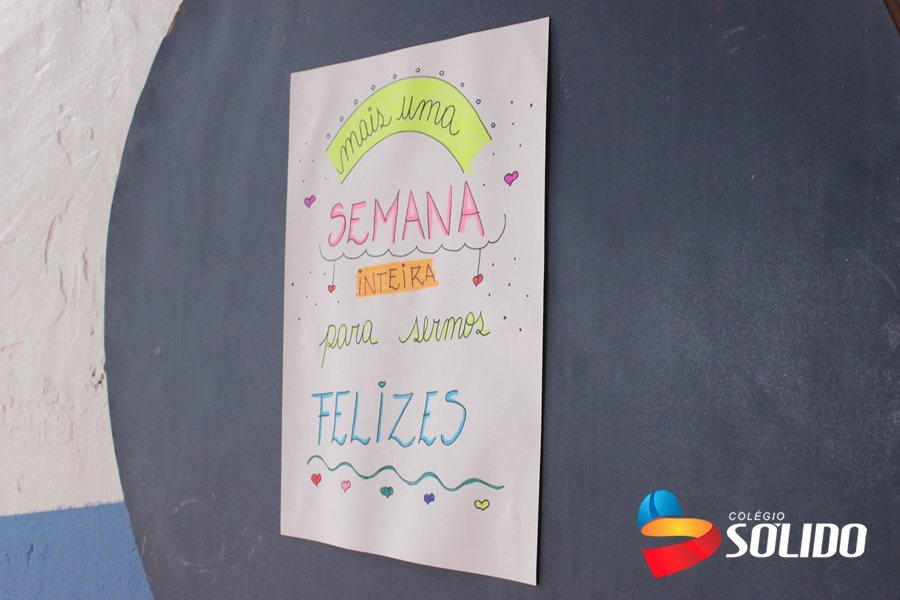 mais uma
SEMANA
iNTEiRA
para sermos
FELiZES
COLÉGIO
SÓLIDO